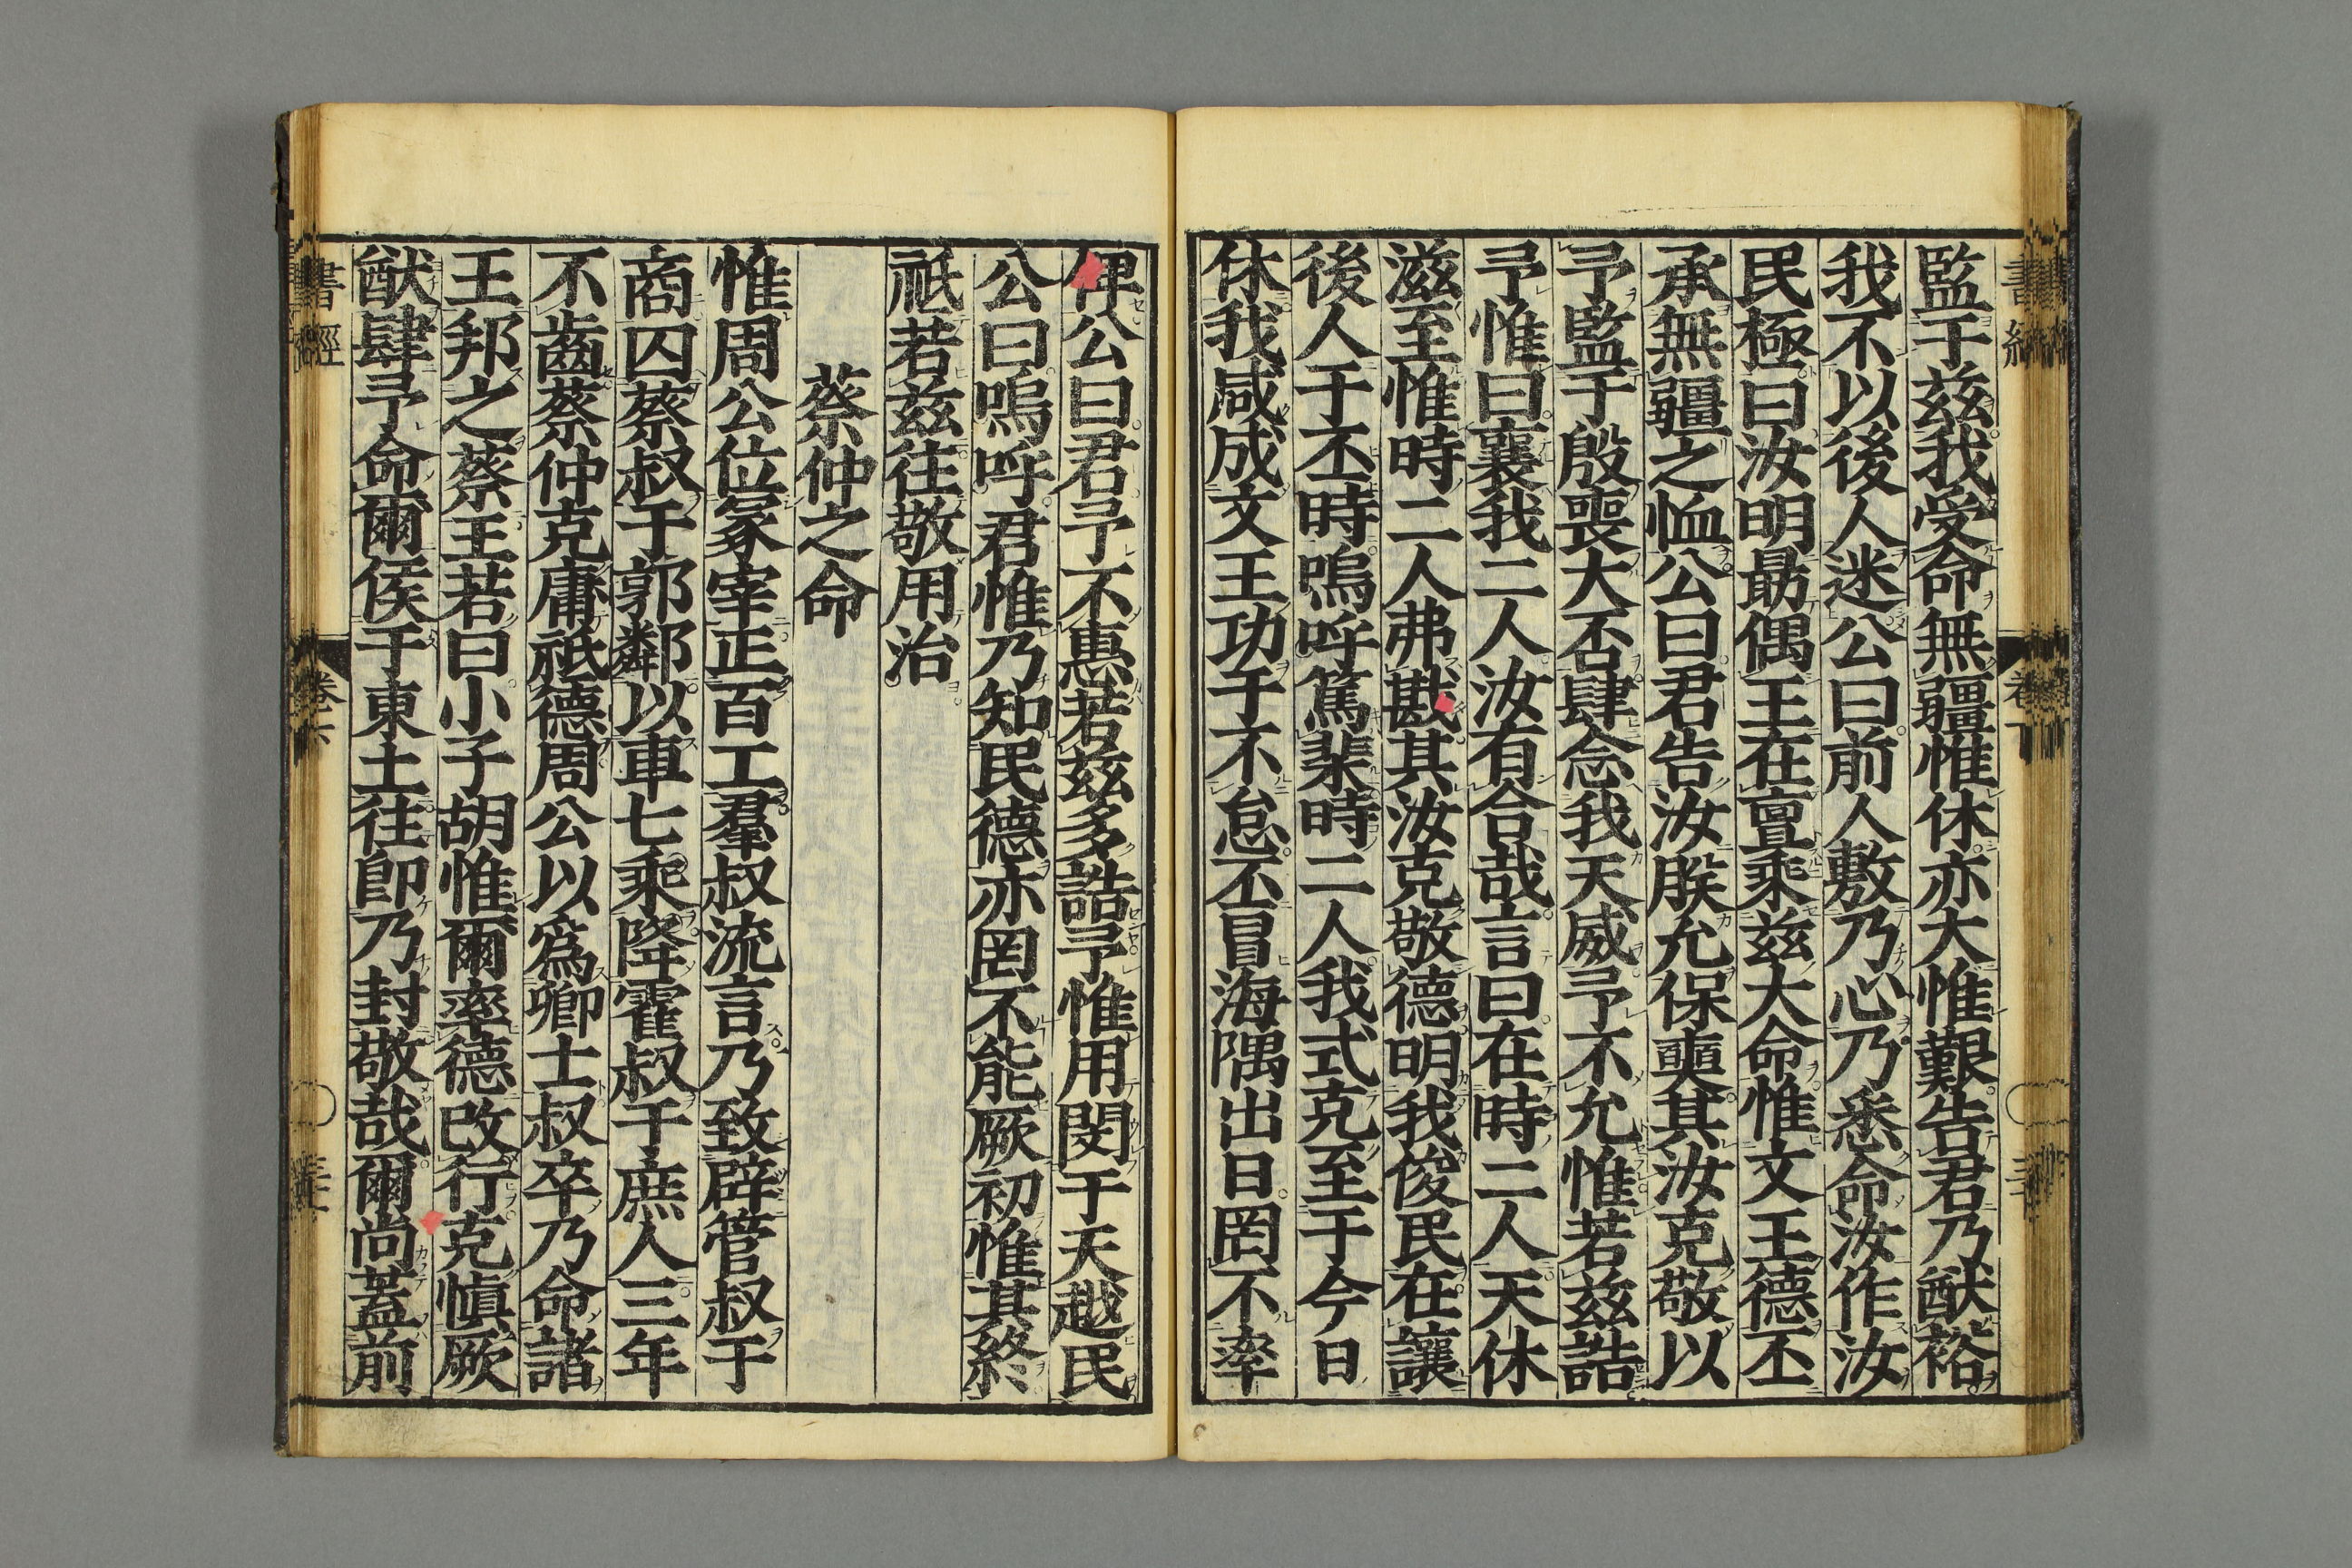 監于兹我受命無疆惟休亦大惟艱告君乃猷裕
我不以後人迷公曰前人敷乃心乃悉命汝作汝
民極曰汝明勗偶王在亶乘兹大命惟文王德丕
承無疆之恤公曰君告汝朕允保奭其汝克敬以
予監于殷喪大否肆念我天威予不允惟若兹誥
予惟曰襄我二人汝有合哉言曰在時二人天休
滋至惟時二人弗戡其汝克敬德明我俊民在讓
後人于丕時嗚呼篤棐時二人我式克至于今日
休我咸成文王功于不怠丕冒海隅出日罔不率
俾公曰君予不惠若兹多誥予惟用閔于天越民
公曰嗚呼君惟乃知民德亦罔不能厥初惟其終
祗若兹往敬用治
蔡仲之命
惟周公位冢宰正百工羣叔流言乃致辟管叔于
商囚蔡叔于郭鄰以車七乘降霍叔于庶人三年
不齒蔡仲克庸祗德周公以爲卿士叔卒乃命諸
王邦之蔡王若曰小子胡惟爾率德改行克愼厥
猷肆予命爾侯于東土往即乃封敬哉爾尚蓋前
書經
卷六